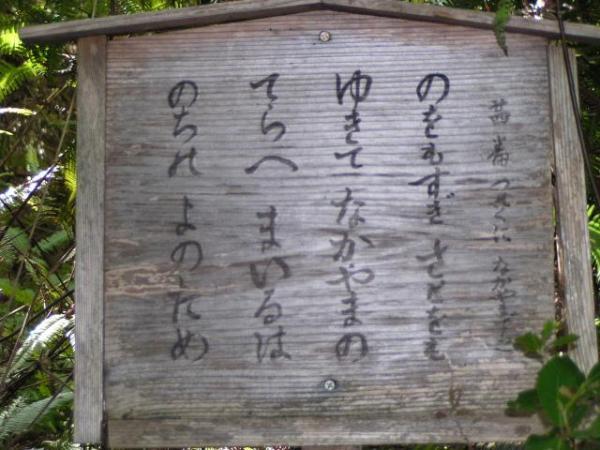 つのくに なかやまでら
のをもすぎ さとをも
ゆきて なかやまの
てらへ まいるは
のちの よの ため